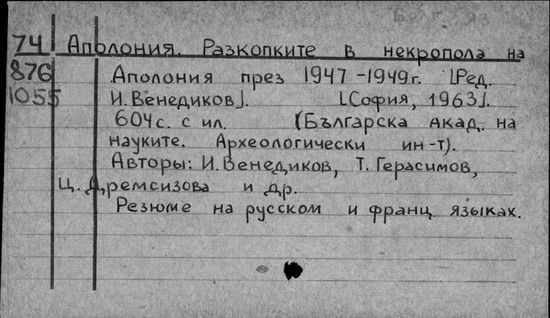 74 Аполония. Разкопките в некропола на
876 Аполония през 1947-1949г. [Ред.
1055 И. Венедиков]. [София, 1963].
604с. с ил. (Българска акад. на
науките. Археологически ин-т).
Авторы: И. Венедиков, Т. Герасимов,
Ц. Дремсизова и др.
Резюме на русском и франц. языках.